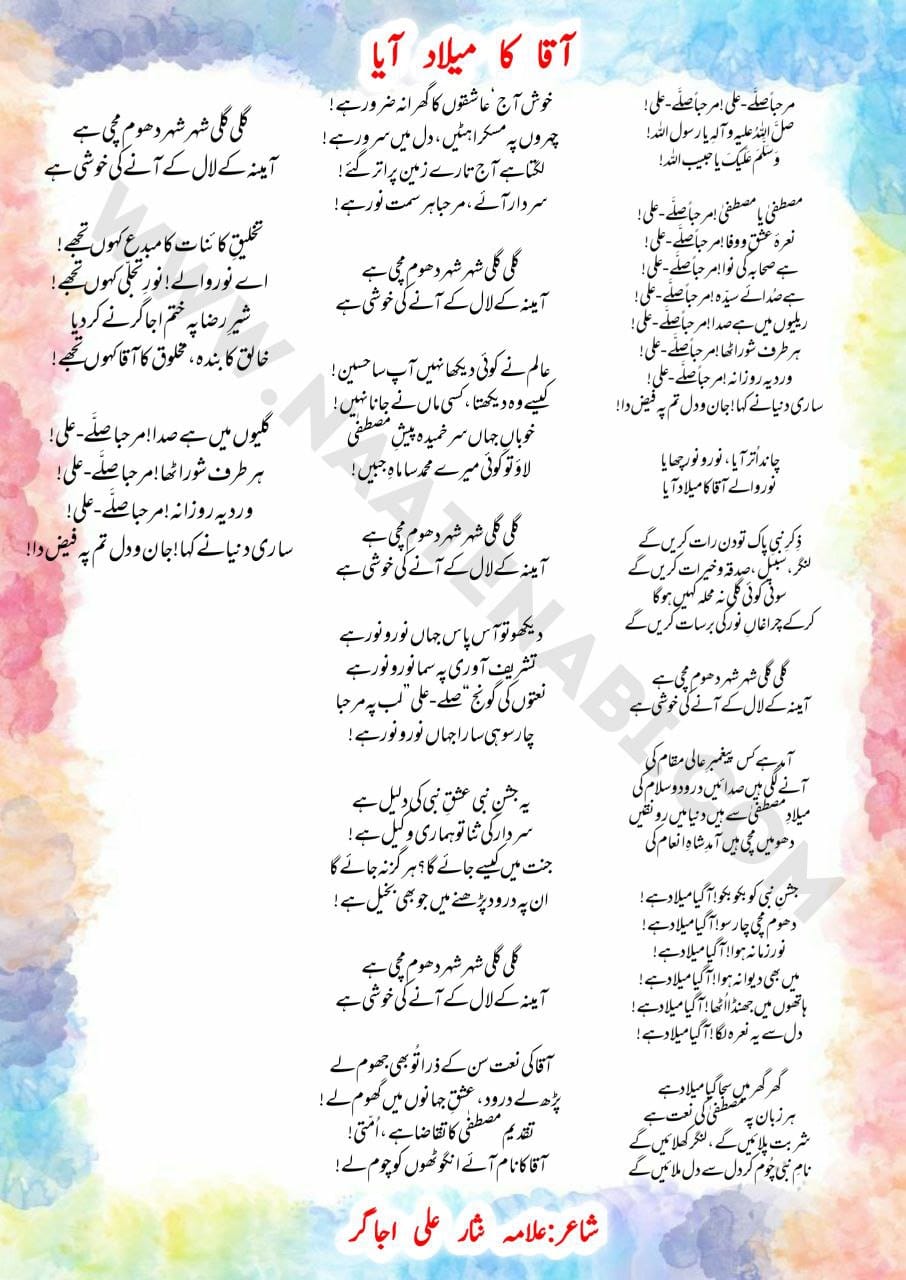 آقا کا میلاد آیا
مرحباً صلَّے-علی! مرحباً صلَّے-علی!
صلَّ اللہُ علیہ و آلہِ یا رسول اللہ!
وَسَلَّمَ عَلَیْکَ یا حبیب اللہ!
مصطفیٰ یا مصطفیٰ! مرحباً صلَّے-علی!
نعرۂ عشق و وفا! مرحباً صلَّے-علی!
ہے صحابہ کی نوا! مرحباً صلَّے-علی!
ہے صُدائے سیدہ! مرحباً صلَّے-علی!
ریلیوں میں ہے صدا! مرحباً صلَّے-علی!
ہر طرف شور اٹھا! مرحباً صلَّے-علی!
ورد یہ روزانہ! مرحباً صلَّے-علی!
ساری دنیا نے کہا! جان و دل تم پہ فیضؔ دا!
چاند اُتر آیا، نور و نور چھایا
نور والے آقا کا میلاد آیا
ذِکرِ نبی پاک تو دن رات کریں گے
لنگر، سبیل، صدقہ و خیرات کریں گے
سونی کوئی گلی نہ محلہ کہیں ہوگا
کر کے چراغاں نور کی برسات کریں گے
گلی گلی شہر شہر دھوم مچی ہے
آمینہ کے لال کے آنے کی خوشی ہے
آمد ہے کس پیغمبرِ عالی مقام کی
آنے لگی ہیں صدائیں درود و سلام کی
میلادِ مصطفیٰ سے ہیں دنیا میں رونقیں
دھومیں مچی ہیں آمدِ شاہِ انعام کی
جشنِ نبی کو بکو بکو! آگیا میلاد ہے!
دھوم مچی چار سو! آگیا میلاد ہے!
نور زمانہ ہوا! آگیا میلاد ہے!
میں بھی دیوانہ ہوا! آگیا میلاد ہے!
ہاتھوں میں جھنڈا اُٹھا! آگیا میلاد ہے!
دل سے یہ نعرہ لگا! آگیا میلاد ہے!
گھر گھر میں سجا گیا میلاد ہے
ہر زبان پہ مصطفیٰ کی نعت ہے
شربت پلائیں گے، لنگر کھلائیں گے
نامِ نبی چُوم کر دل سے دل ملائیں گے
خوش آج 'عاشقوں کا گھرانہ ضرور ہے!
چہروں پہ مسکراہٹیں، دل میں سرور ہے!
لگتا ہے آج تارے زمین پر اتر گئے!
سردار آئے، مرحبا ہر سمت نور ہے!
گلی گلی شہر شہر دھوم مچی ہے
آمینہ کے لال کے آنے کی خوشی ہے
عالم نے کوئی دیکھا نہیں آپ سا حسین!
کیسے وہ دیکھتا، کسی ماں نے جانا نہیں!
خوباں جہاں سر خمیدہ پیشِ مصطفی
لاؤ تو کوئی میرے محمد سا ماہ جبیں!
گلی گلی شہر شہر دھوم مچی ہے
آمینہ کے لال کے آنے کی خوشی ہے
دیکھو تو آس پاس جہاں نور و نور ہے
تشریف آوری پہ سما نور و نور ہے
نعتوں کی گونج “صلے-علی” لب پہ مرحبا
چار سو ہی سارا جہاں نور و نور ہے!
یہ جشنِ نبی عشقِ نبی کی دلیل ہے
سردار کی ثنا تو ہماری وکیل ہے!
جنت میں کیسے جائے گا؟ ہر گز نہ جائے گا
ان پہ درود پڑھنے میں جو بھی بخیل ہے!
گلی گلی شہر شہر دھوم مچی ہے
آمینہ کے لال کے آنے کی خوشی ہے
آقا کی نعت سن کے ذرا تُو بھی جھوم لے
پڑھ لے درود، عشقِ جہانوں میں گھوم لے!
تقدیم مصطفٰی کا تقاضا ہے، اُمّتی!
آقا کا نام آئے انگوٹھوں کو چوم لے!
گلی گلی شہر شہر دھوم مچی ہے
آمینہ کے لال کے آنے کی خوشی ہے
تخلیقِ کائنات کا مبدع کہوں تجھے!
اے نور والے! نورِ تجلّی کہوں تجھے!
شیرِ رضا پہ ختم اجاگر نے کر دیا
خالق کا بندہ، مخلوق کا آقا کہوں تجھے!
گلیوں میں ہے صدا! مرحبا صلَّے-علی!
ہر طرف شور اٹھا! مرحبا صلَّے-علی!
ورد یہ روزانہ! مرحبا صلَّے-علی!
ساری دنیا نے کہا! جان و دل تم پہ فیضؔ دا!
شاعر:علامہ نثار علی اجاگر
WWW.NAATENABI.COM